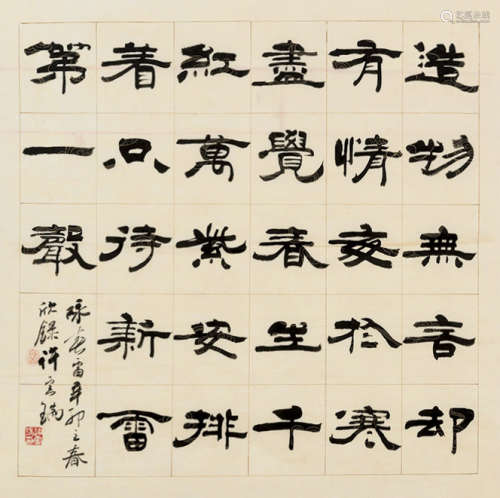 造物無言却
有情每於寒
盡覺春生千
紅萬紫安排
着只待新雷
第一聲
咏春雷辛卯之春
欣録許